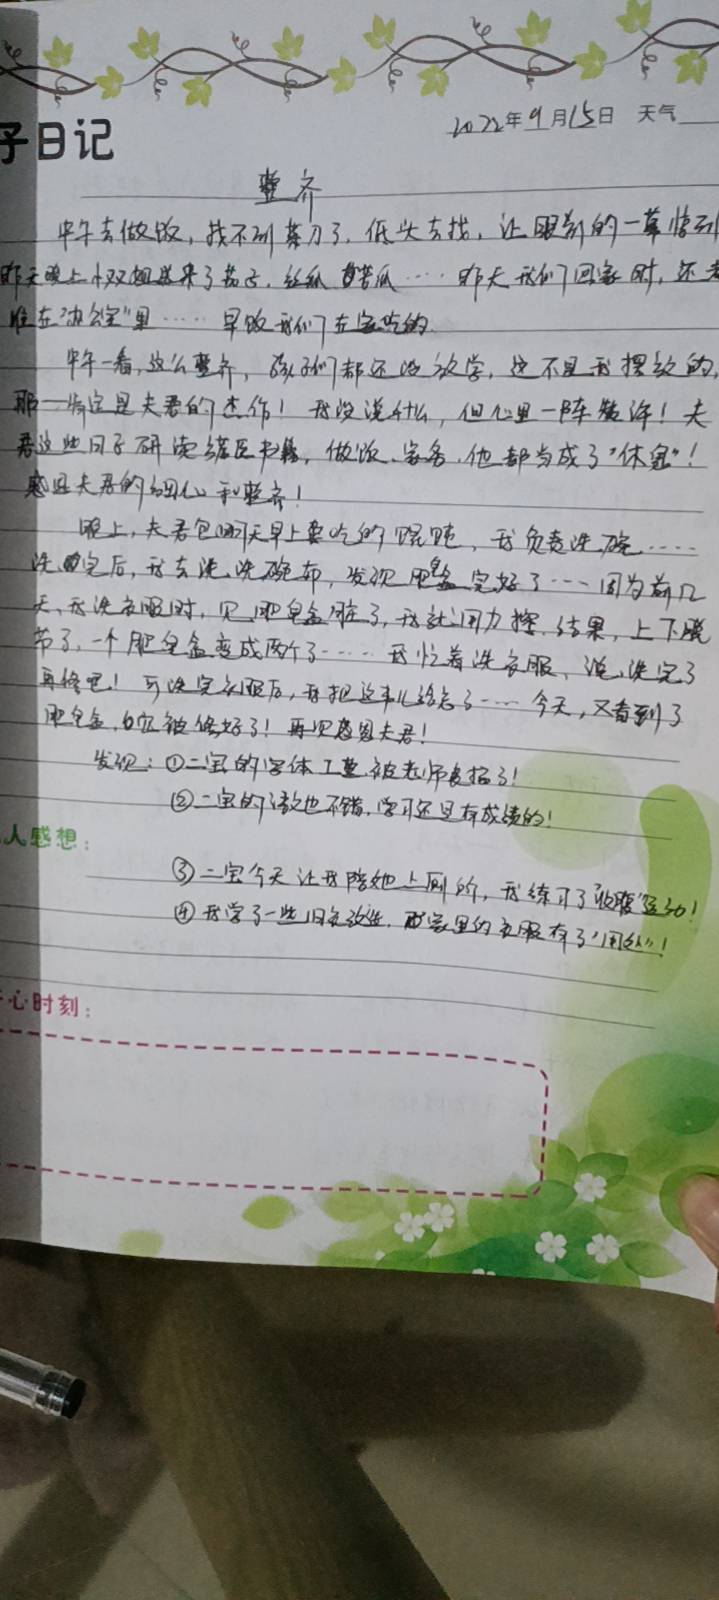 子日记
2022年9月15日 天气
整齐
中午去做饭，找不到菜刀了，低头去找，让眼前的一幕惊到
昨天晚上小双姐送来了茄子、丝瓜、苦瓜……昨天我们回家时，还
堆在“办公室”里……早饭我们在家吃的
中午一看，这么整齐，孩子们都还没放学，这不是我摆放的，
那一肯定是夫君的杰作！我没说什么，但心里一阵赞许！夫
君这些日子研读医书籍，做饭、家务，他都当成了“休息”！
感恩夫君的细心和整齐！
晚上，夫君包明天早上要吃的馄饨，我负责洗碗……
洗完后，我去洗洗碗布，发现肥皂盒完好了……因为前几
天，我洗衣服时，见肥皂盒脏了，我就用力擦，结果，上下脱
节了，一个肥皂盒变成两个了……我忙着洗衣服，说，洗完了
再修吧！可洗完衣服后，我把这事儿给忘了……今天，又看到了
肥皂盒，它被修好了！再次感恩夫君！
发现：①二宝的字体工整，被老师表扬了！
②二宝的语文也不错，学习还是有成绩的！
人感想：
③二宝今天让我陪她上厕所，我练习了收腹运动！
④我学了一些旧衣改造，家里的衣服有了“用处”！
心时刻：